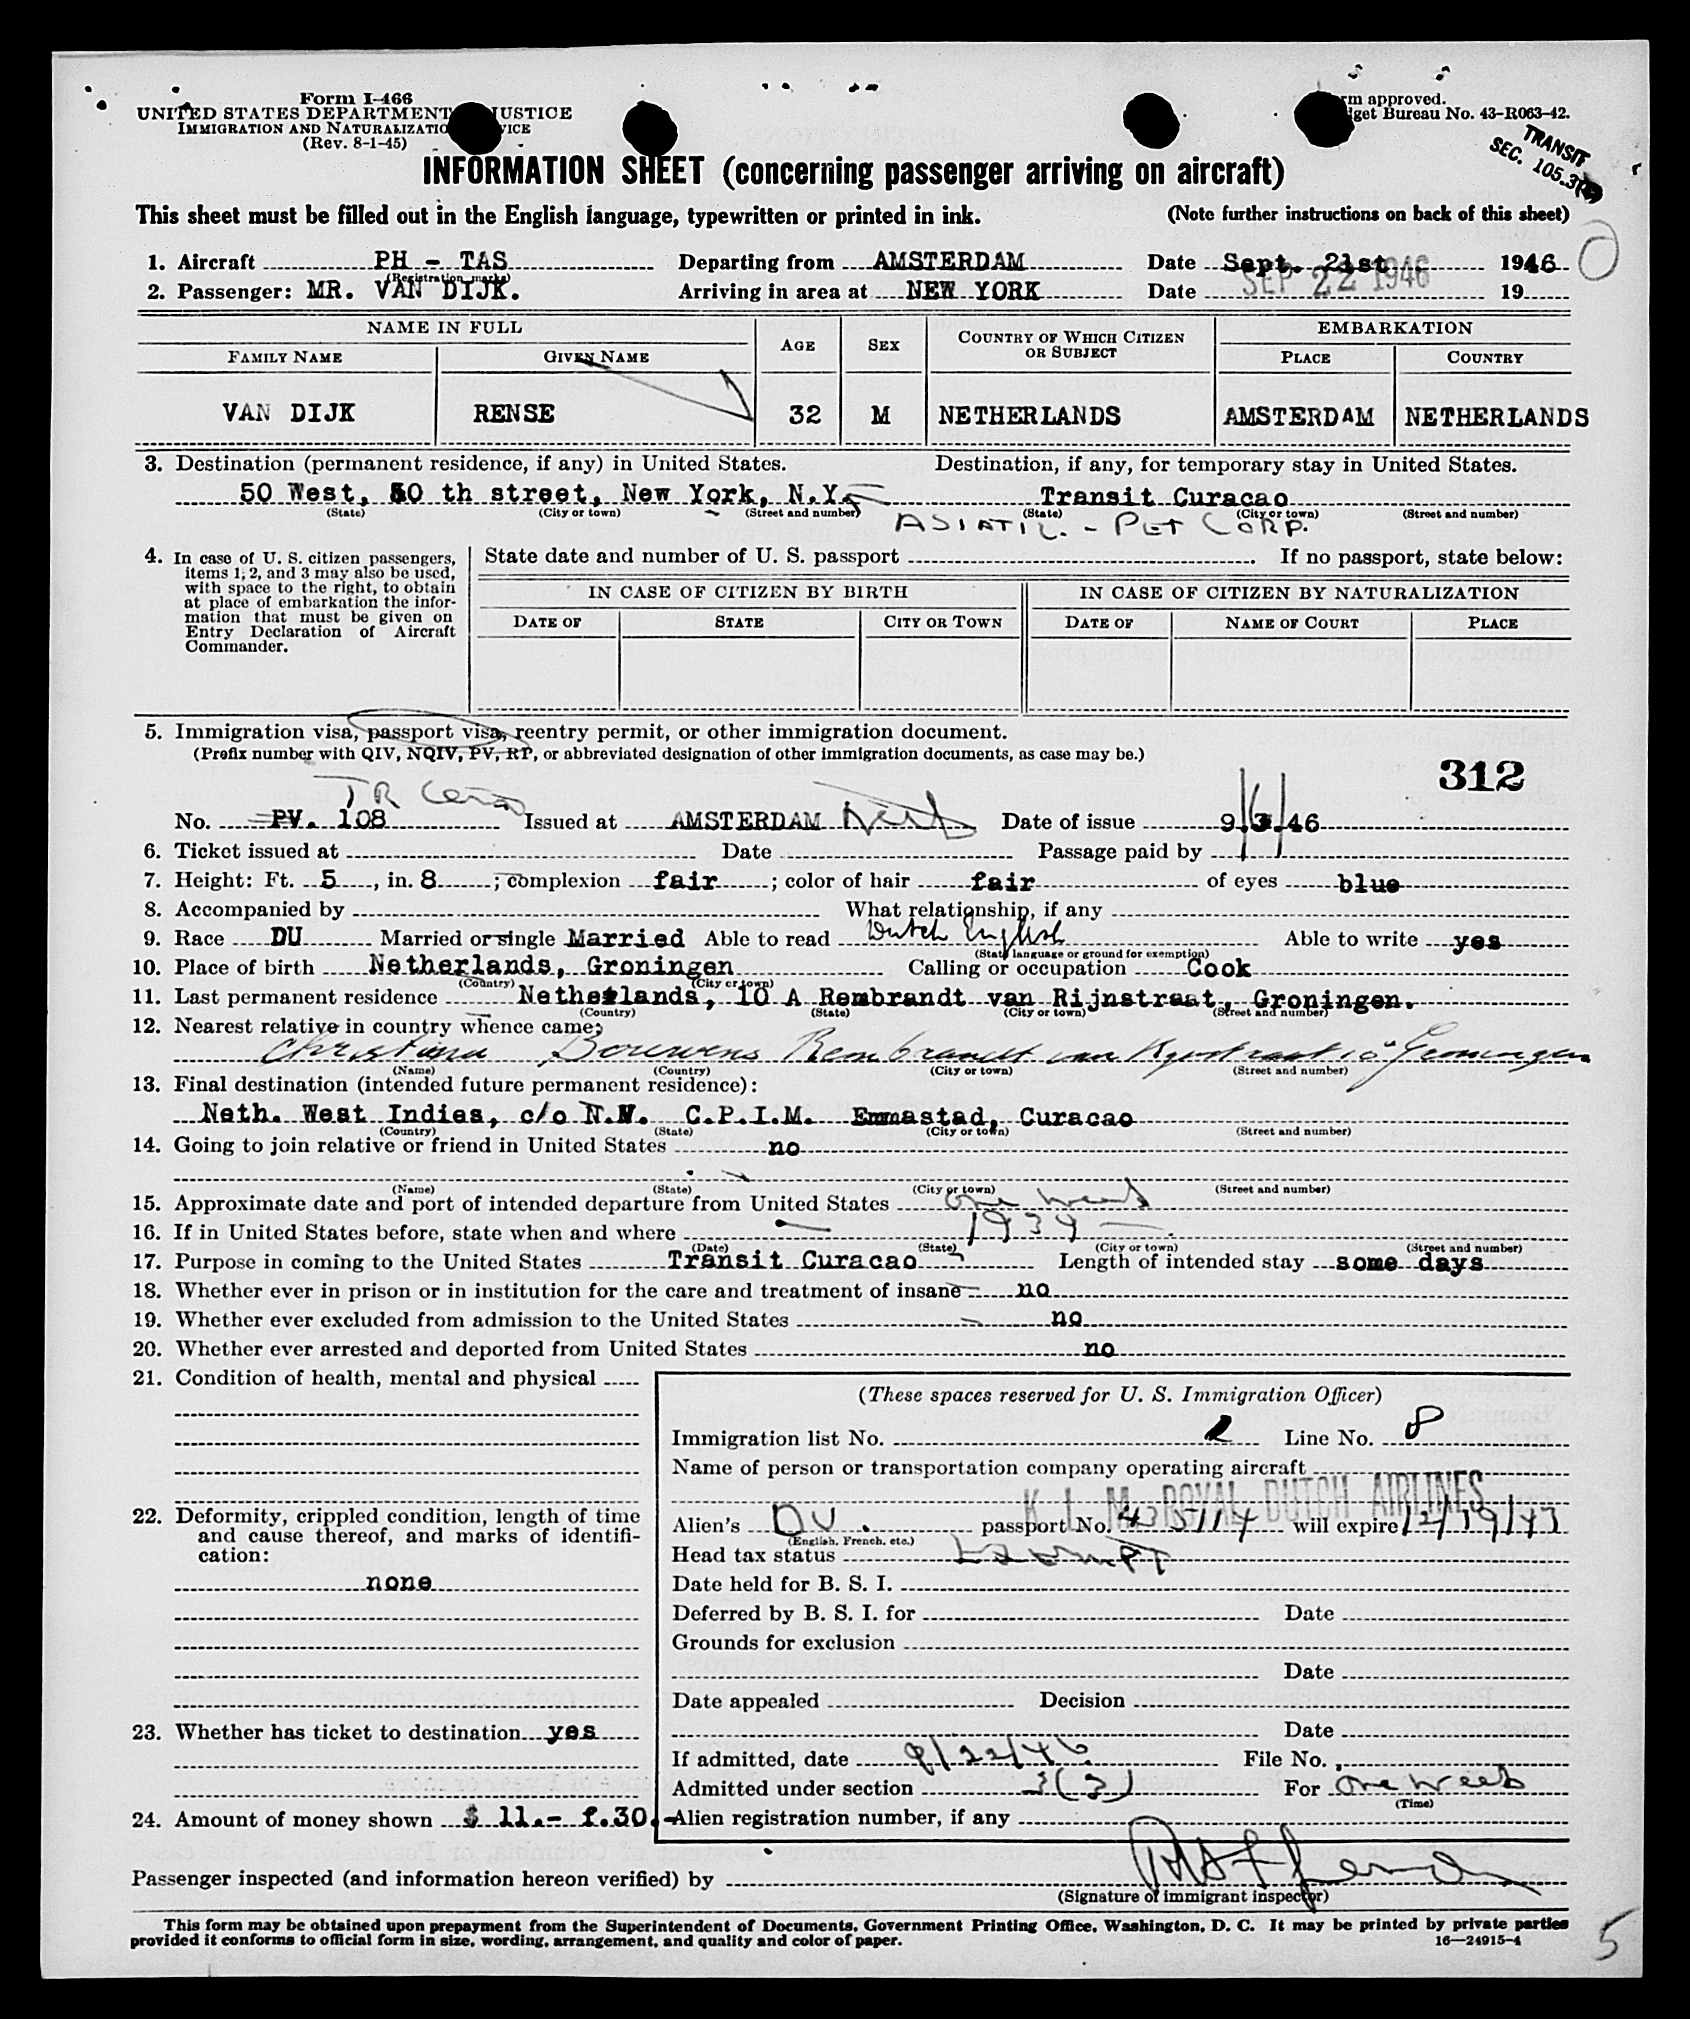 Form I-466
UNITED STATES DEPARTMENT JUSTICE
IMMIGRATION AND NATURALIZATION
(Rev. 8-1-45)
approved.
Bureau No. 43-R063-42.
TRANSIT
SEC. 105.3
INFORMATION SHEET (concerning passenger arriving on aircraft)
This sheet must be filled out in the English language, typewritten or printed in ink. (Note further instructions on back of this sheet)
1. Aircraft PH - TAS Departing from AMSTERDAM Date Sept. 21st 1946
(Registration marks)
2. Passenger: MR. VAN DIJK. Arriving in area at NEW YORK Date SEP 22 1946 19
NAME IN FULL AGE SEX COUNTRY OF WHICH CITIZEN OR SUBJECT EMBARKATION
FAMILY NAME GIVEN NAME PLACE COUNTRY
VAN DIJK RENSE 32 M NETHERLANDS AMSTERDAM NETHERLANDS
3. Destination (permanent residence, if any) in United States. Destination, if any, for temporary stay in United States.
50 West, 50 th street, New York, N.Y. Transit Curacao
(State) (City or town) (Street and number) (State) (City or town) (Street and number)
ASIATIC. - PET CORP.
4. In case of U. S. citizen passengers, items 1, 2, and 3 may also be used, with space to the right, to obtain at place of embarkation the information that must be given on Entry Declaration of Aircraft Commander.
State date and number of U. S. passport . If no passport, state below:
IN CASE OF CITIZEN BY BIRTH IN CASE OF CITIZEN BY NATURALIZATION
DATE OF STATE CITY OR TOWN DATE OF NAME OF COURT PLACE
5. Immigration visa, passport visa, reentry permit, or other immigration document.
(Prefix number with QIV, NQIV, PV, RP, or abbreviated designation of other immigration documents, as case may be.)
312
TR
No. PV. 108 Issued at AMSTERDAM Neth Date of issue 9/3/46
6. Ticket issued at Date Passage paid by
7. Height: Ft. 5, in. 8; complexion fair; color of hair fair of eyes blue
8. Accompanied by What relationship, if any
9. Race DU Married or single Married Able to read Dutch English Able to write yes
(State language or ground for exemption)
10. Place of birth Netherlands, Groningen Calling or occupation Cook
(Country) (City or town)
11. Last permanent residence Netherlands, 10 A Rembrandt van Rijnstraat, Groningen.
(Country) (State) (City or town) (Street and number)
12. Nearest relative in country whence came;
Christina Bouwens Rembrandt van Rynstraat 10a Groningen
(Name) (Country) (City or town) (Street and number)
13. Final destination (intended future permanent residence):
Neth. West Indies, c/o N.V. C.P.I.M. Emmastad, Curacao
(Country) (State) (City or town) (Street and number)
14. Going to join relative or friend in United States no
(Name) (State) (City or town) (Street and number)
15. Approximate date and port of intended departure from United States one week
16. If in United States before, state when and where 1939
(Date) (State) (City or town) (Street and number)
17. Purpose in coming to the United States Transit Curacao Length of intended stay some days
18. Whether ever in prison or in institution for the care and treatment of insane no
19. Whether ever excluded from admission to the United States no
20. Whether ever arrested and deported from United States no
21. Condition of health, mental and physical
22. Deformity, crippled condition, length of time and cause thereof, and marks of identification:
none
23. Whether has ticket to destination yes
24. Amount of money shown $ 11.- f.30.-
(These spaces reserved for U. S. Immigration Officer)
Immigration list No. 2 Line No. 8
Name of person or transportation company operating aircraft
K L M ROYAL DUTCH AIRLINES
Alien's DU. passport No. will expire 12/19/47
(English, French, etc.)
Head tax status Exempt
Date held for B. S. I.
Deferred by B. S. I. for Date
Grounds for exclusion
Date
Date appealed Decision
Date
If admitted, date 9/22/46 File No.
Admitted under section 3(3) For one week
(Time)
Alien registration number, if any
Passenger inspected (and information hereon verified) by
(Signature of immigrant inspector)
This form may be obtained upon prepayment from the Superintendent of Documents, Government Printing Office, Washington, D. C. It may be printed by private parties
provided it conforms to official form in size, wording, arrangement, and quality and color of paper. 16—24915-4
5